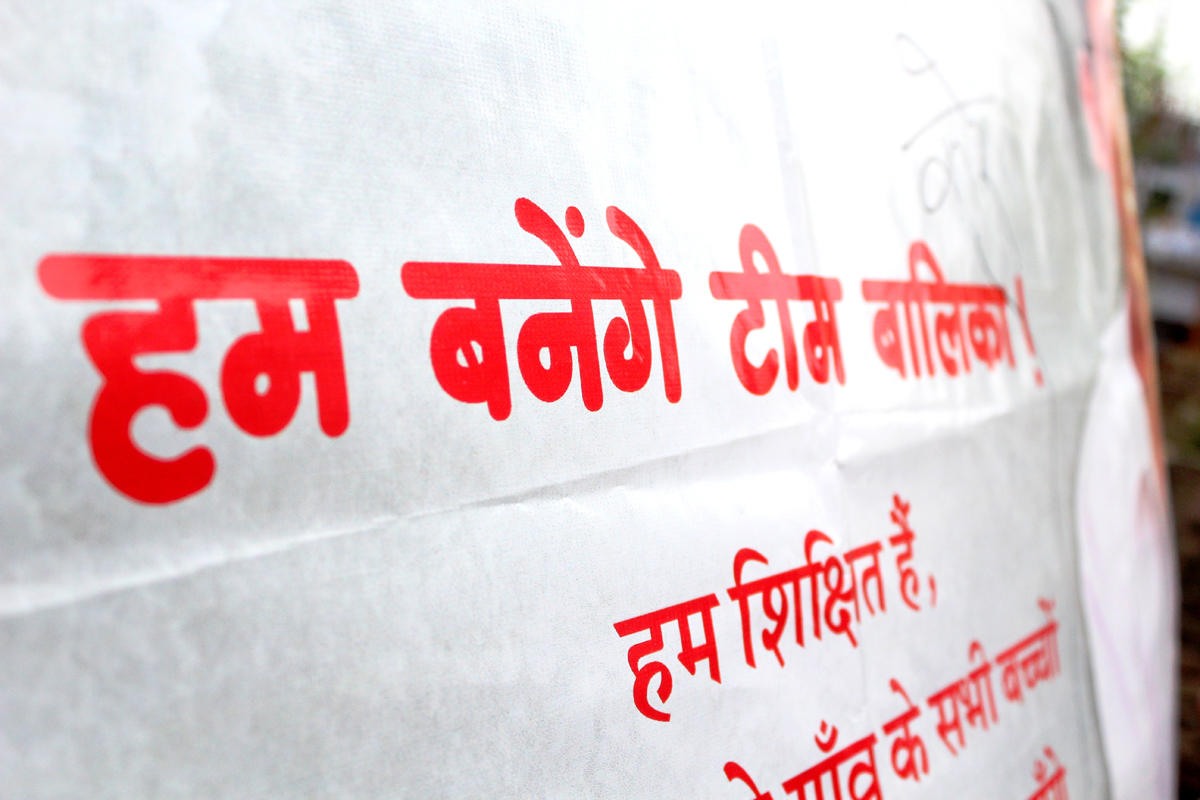 हम बनेंगे टीम बालिका!
हम शिक्षित हैं,
गाँव के सभी बच्चों